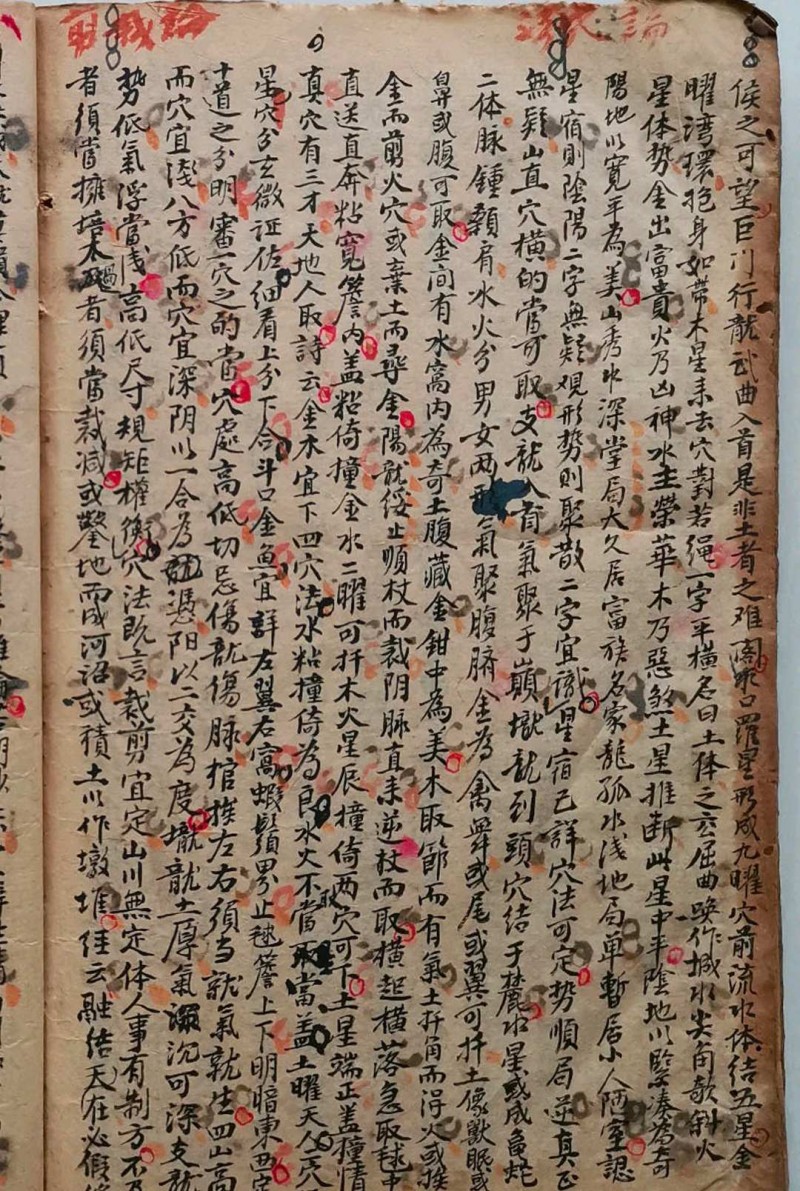 論穴法
侯之可望巨门行龍武曲入首是非土者之难闹眾口羅星形成九曜穴前流水体结五星金
曜湾環抱身如带木星来去穴對若绳一字平横名曰土体之玄屈曲唤作城水尖角欹斜火
星体势金出富貴火乃凶神水主榮華木乃惡煞土星推断此星中平陰地以緊凑為奇
陽地以寬平為美山秀水深堂局大久居富族名家龍孤水浅地局單暫居小人陋室認
星宿則陰陽二字無疑观形势則聚散二字宜識星宿已詳穴法可定势順局逆真正
無疑山直穴横的當可取支龍入首氣聚于巔壠龍到頭穴结于麓水星或成亀蛇
二体脉鍾頸肩水火分男女两形氣聚腹臍金為禽粦或尾或翼可扦土像獸眠或
鼻或腹可取金间有水窩内為奇土腹藏金鉗中為美木取節而有氣土扦角而浔火或挨
金而剪火穴或棄土而尋金陽龍綏止順杖而裁阴脉直来逆杖而取横起横落急取毬中
直送直奔粘寬簷内盖粘倚撞金水二曜可扦木火星辰撞倚两穴可下土星端正盖撞情
真穴有三才天地人取詩云金木宜下四穴法水粘撞倚為良水火不當取當盖土曜天人穴
星穴分玄微证佐细看上分下合斗口金魚宜詳左翼右窩蝦鬚界止毬簷上下明暗東西定
十道之分明審一穴之的當穴處高低切忌傷龍傷脉棺挨左右須当就氣就生四山高
而穴宜浅八方低而穴宜深阴以一合為憑阳以二交為度壠龍土厚氣沉可深支龍
势低氣浮當浅高低尺寸規矩權衡穴法既言裁剪宜定山川無定体人事有制方不及
者須當擁培太過者須當裁减或鑿地而成河沼或積土以作墩堆经云融结天在必假修
論裁取